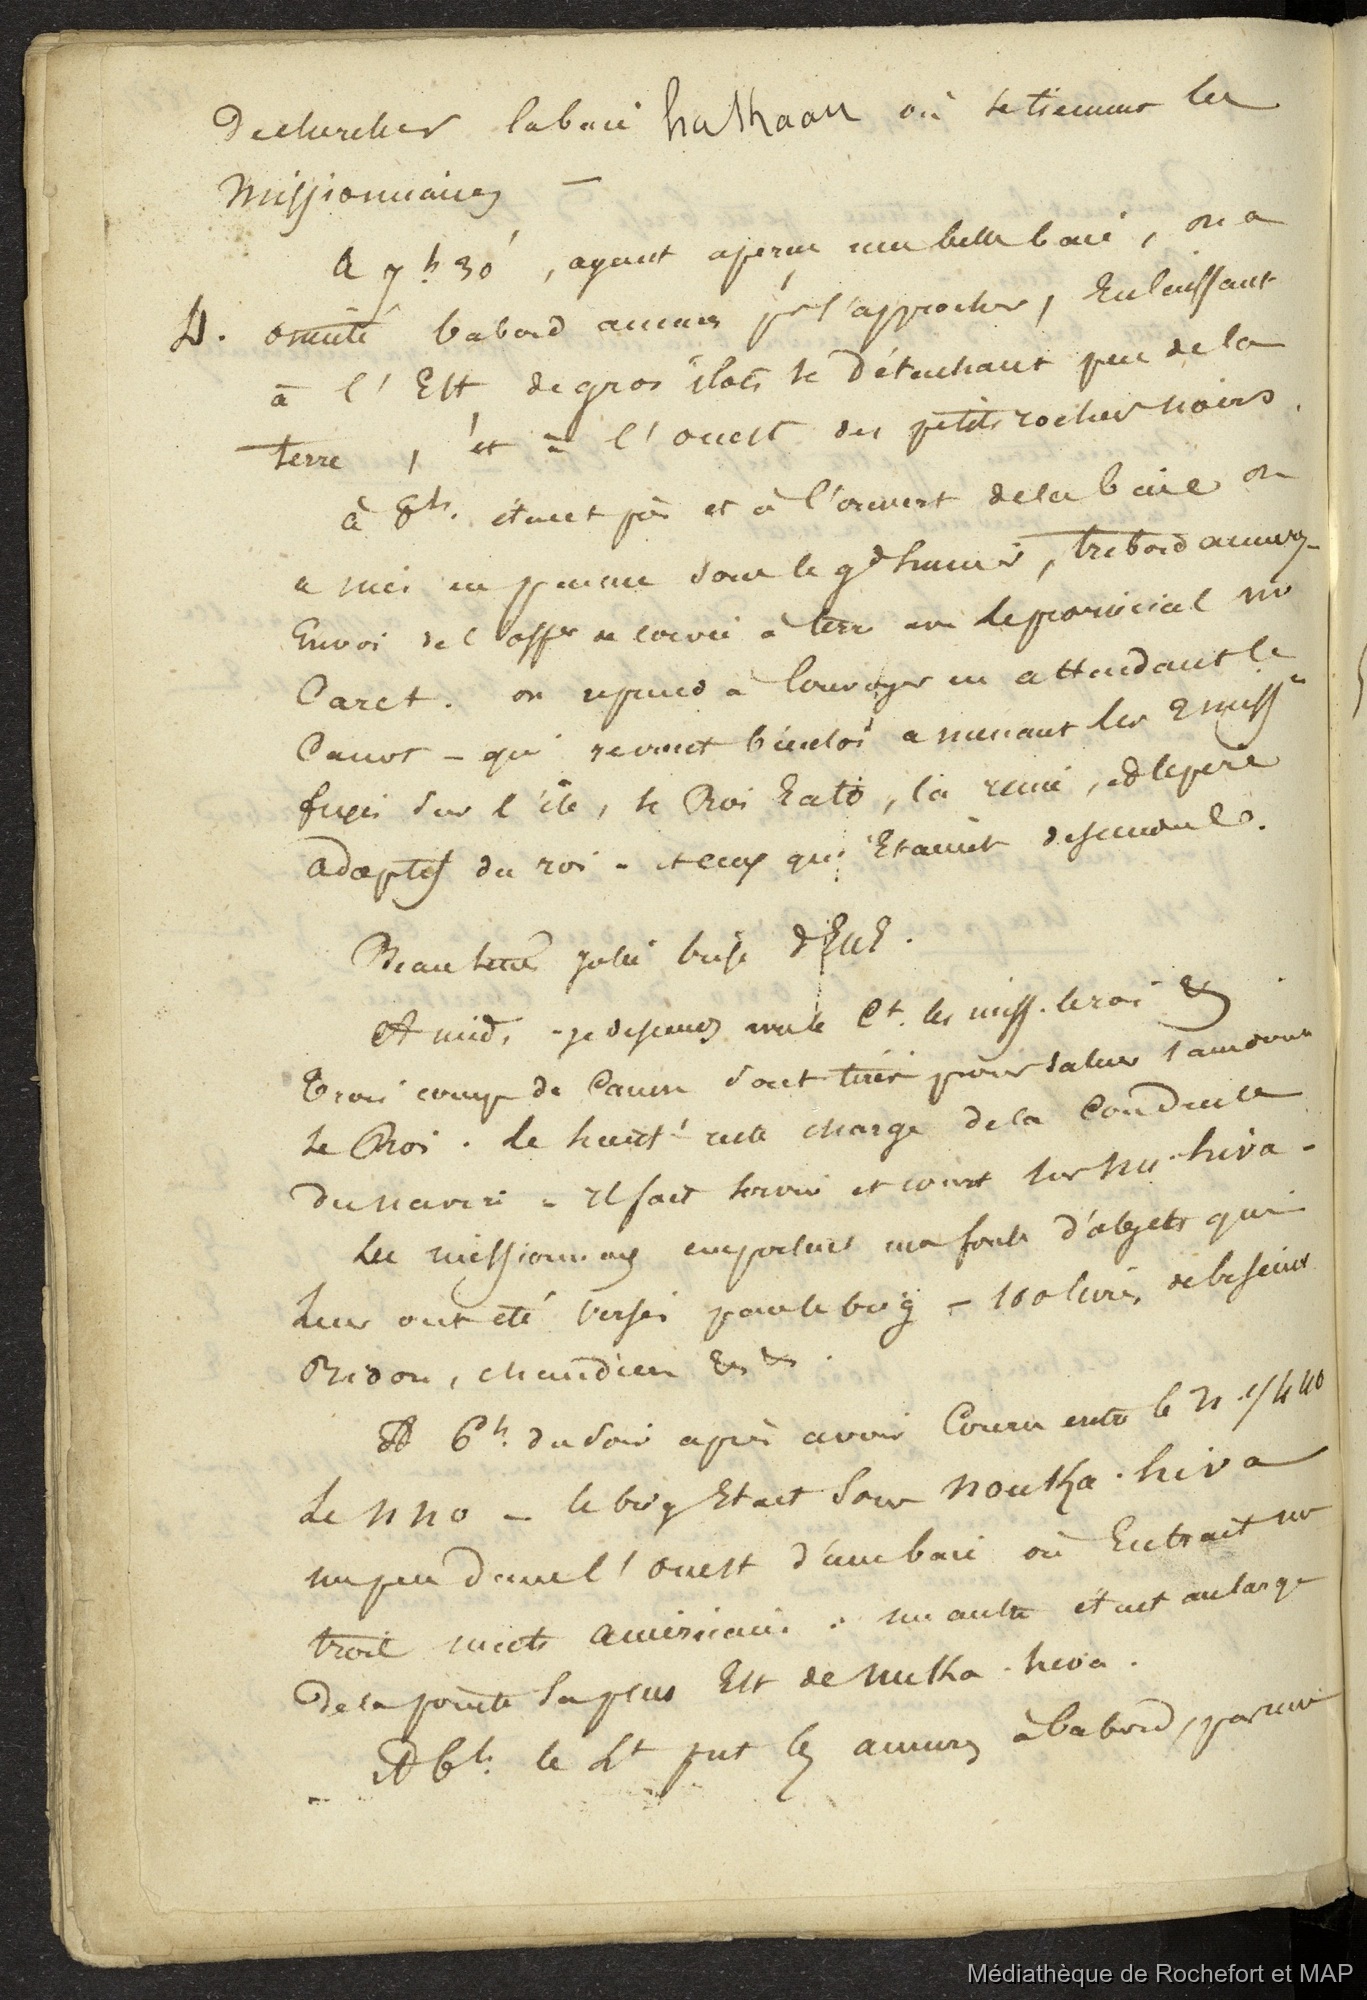 De chercher la baie hakhaau où se tiennent les
Missionnaires —
A 7h 30', ayant aperçu une belle baie, on a
D. ensuite babord amures pr l'approcher, En laissant
à l'Est de gros îlots se détachant peu de la
terre, et à l'ouest des petits rochers noirs.
à 8h. étant près et à l'ouvert de la baie on
a mis en panne sous le gd hunier, tribord amures
Envoi de l'offr de corvée à terre avec le provincial mr
Caret. on reprend à louvoyer en attendant le
Canot – qui revint bientôt amenant les 2 miss.
fixés sur l'île, le Roi Eato, la reine, et le père
adoptif du roi – et ceux qui Etaient descendus.
Beau temps jolie brise d'ENE.
A midi, – je descends avec le Ct. les miss. le roi &
Trois coups de Canon sont tirés pour saluer
Le Roi. Le lieut. reste chargé de la Conduite
du navire – Il fait servir et court sur nu-hiva –
Les missionnaires emportent une foule d'objets qui
Leur ont été versés par le brig – 100 livres de
Bidon, chaudière &
A 6h. du soir après avoir Couru entre le N.
Le NNO – le brig Etait sous noukha-hiva
un peu dans l'ouest d'une baie où Entrait un
trois mats américain. un autre étant au large
De la pointe la plus Est de nukha-hiva.
A 6h. le Lt prit les amures à babord, par un
Médiathèque de Rochefort et MAP